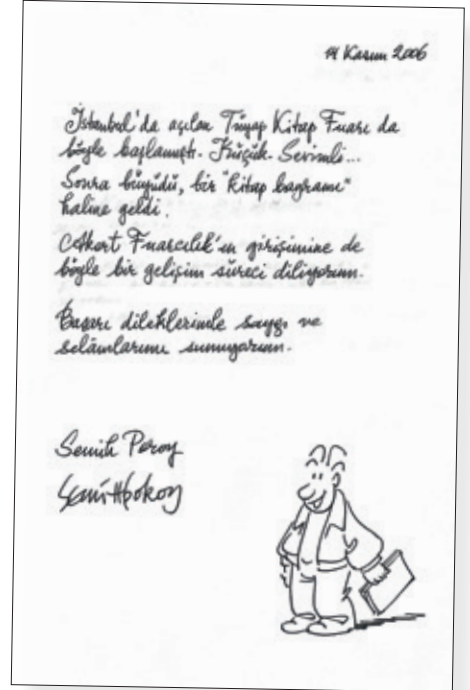 14 Kasım 2006
İstanbul'da açılan Tüyap Kitap Fuarı da
böyle başlamıştı. Küçük. Sevimli...
Sonra büyüdü, bir "kitap bayramı"
haline geldi.
Akort Fuarcılık'ın girişimine de
böyle bir gelişim süreci diliyorum.
Başarı dileklerimle saygı ve
selâmlarımı sunuyorum.
Semih Poroy